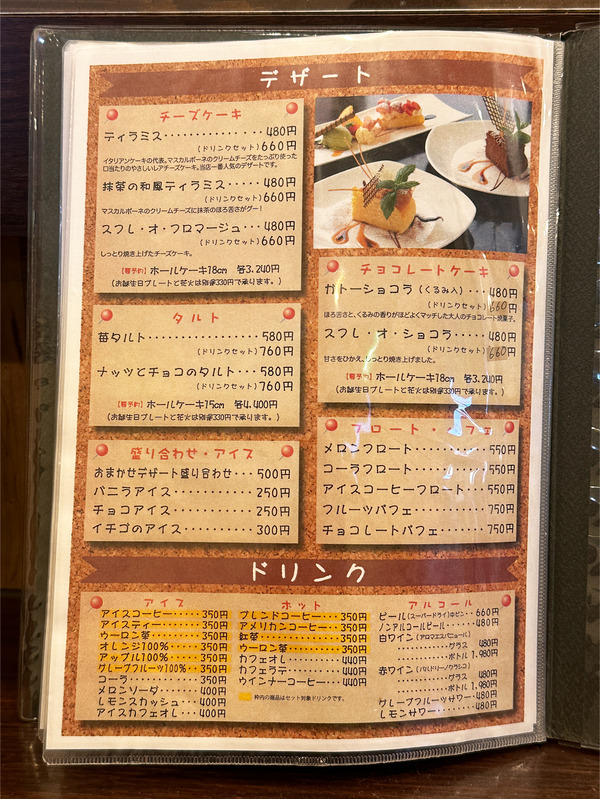 デザート
チーズケーキ
ティラミス・・・・・・・・・・・・・480円
(ドリンクセット)660円
イタリアンケーキの代表。マスカルポーネのクリームチーズをたっぷり使った
口当たりのやさしいレアチーズケーキ。当店一番人気のデザートです。
抹茶の和風ティラミス・・・・・480円
(ドリンクセット)660円
マスカルポーネのクリームチーズに抹茶のほろ苦さがグー!
スフレ・オ・フロマージュ・・・480円
(ドリンクセット)660円
しっとり焼き上げたチーズケーキ。
【要予約】ホールケーキ18cm 各3.240円
(お誕生日プレートと花火は別途330円で承ります。)
タルト
苺タルト・・・・・・・・・・・・・580円
(ドリンクセット)760円
ナッツとチョコのタルト・・・580円
(ドリンクセット)760円
【要予約】ホールケーキ15cm 各4.400円
(お誕生日プレートと花火は別途330円で承ります。)
盛り合わせ・アイス
おまかせデザート盛り合わせ・・・500円
バニラアイス・・・・・・・・・・・250円
チョコアイス・・・・・・・・・・・250円
イチゴのアイス・・・・・・・・・・300円
チョコレートケーキ
ガトーショコラ(くるみ入)・・・480円
(ドリンクセット)660円
ほろ苦さと、くるみの香りがほどよくマッチした大人のチョコレート焼菓子。
スフレ・オ・ショコラ・・・・・480円
(ドリンクセット)660円
甘さをひかえ、しっとり焼き上げました。
【要予約】ホールケーキ18cm 各3.240円
(お誕生日プレートと花火は別途330円で承ります。)
フロート・パフェ
メロンフロート・・・・・・・・・・550円
コーラフロート・・・・・・・・・・550円
アイスコーヒーフロート・・・550円
フルーツパフェ・・・・・・・・・・750円
チョコレートパフェ・・・・・・750円
ドリンク
アイス
アイスコーヒー・・・・・350円
アイスティー・・・・・・・350円
ウーロン茶・・・・・・・・350円
オレンジ100%・・・・・350円
アップル100%・・・・・350円
グレープフルーツ100%・・350円
コーラ・・・・・・・・・・・350円
メロンソーダ・・・・・・400円
レモンスカッシュ・・・400円
アイスカフェオレ・・・400円
ホット
ブレンドコーヒー・・・350円
アメリカンコーヒー・・350円
紅茶・・・・・・・・・・・・350円
ウーロン茶・・・・・・・350円
カフェオレ・・・・・・・440円
カフェラテ・・・・・・・440円
ウインナーコーヒー・・440円
枠内の商品はセット対象ドリンクです。
アルコール
ビール(スーパードライ)中ビン・・660円
ノンアルコールビール・・・・・480円
白ワイン(アロマエスパニョール)
・・・・・・・・・・グラス 480円
・・・・・・・・・・ボトル 1.980円
赤ワイン(バルドリーノクラシコ)
・・・・・・・・・・グラス 480円
・・・・・・・・・・ボトル 1.980円
グレープフルーツサワー・・480円
レモンサワー・・・・・・・・480円